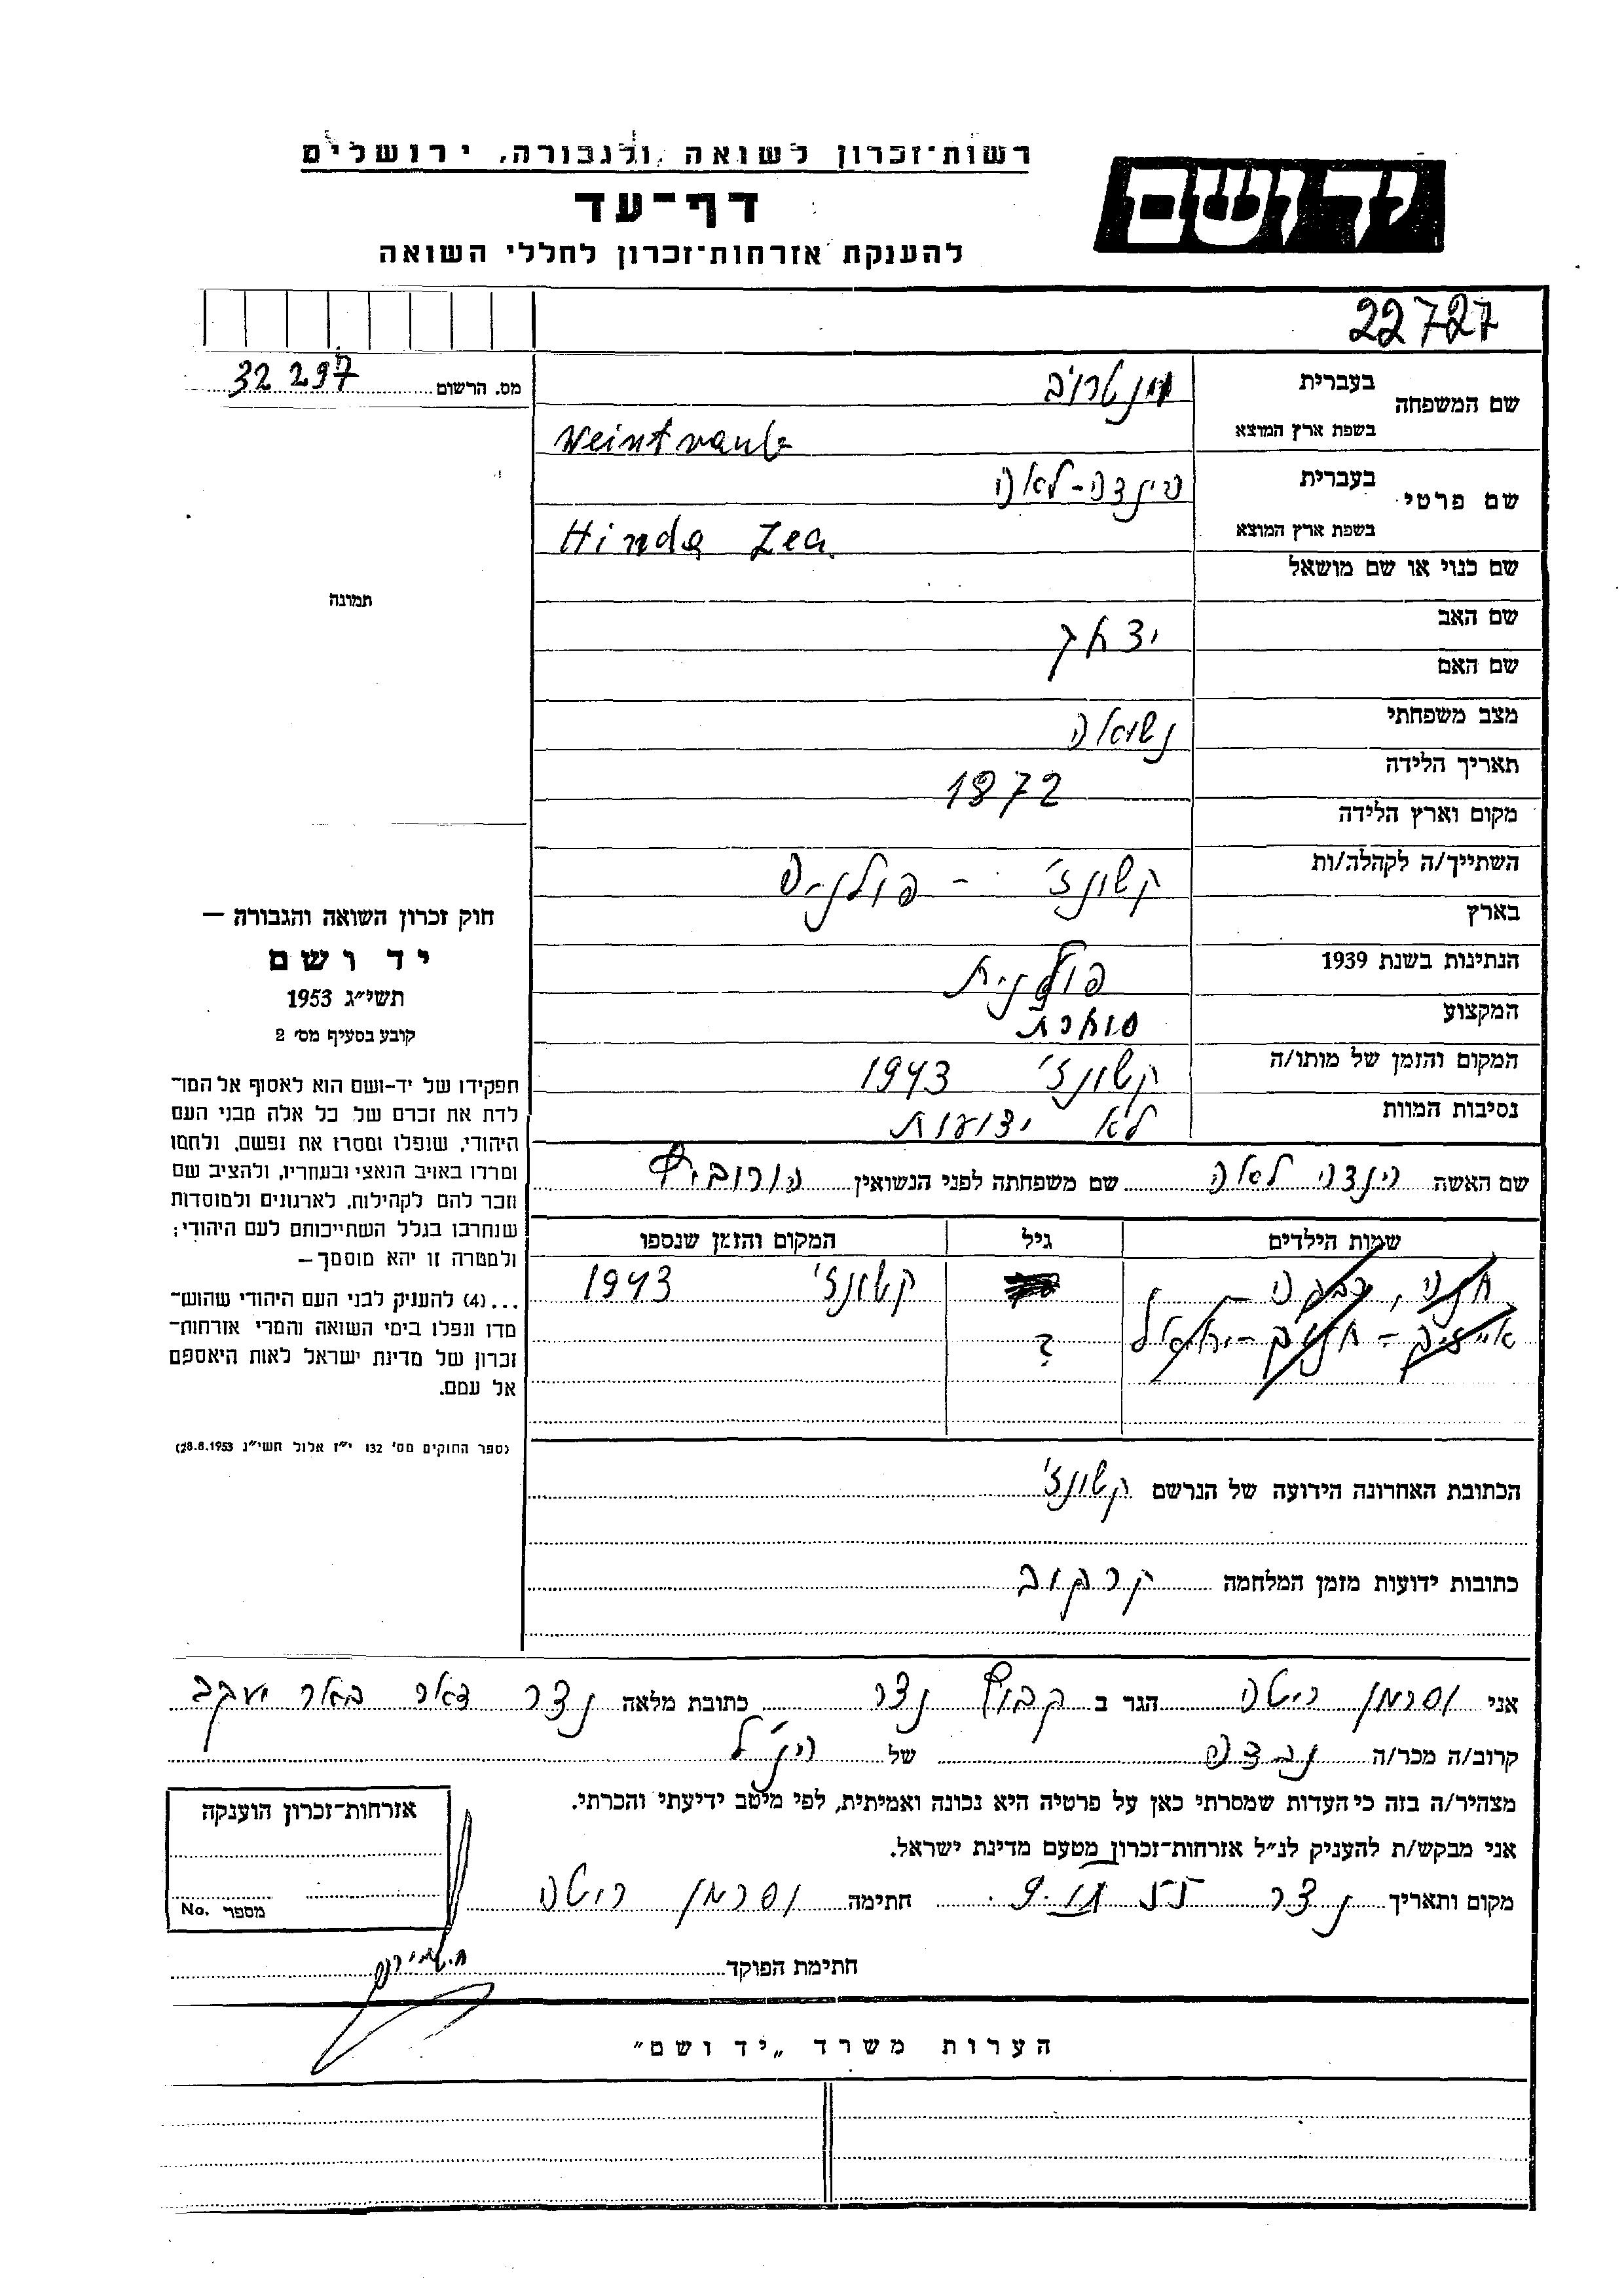 רשות־זכרון לשואה ולגבורה, ירושלים
יד ושם
דף־עד
להענקת אזרחות־זכרון לחללי השואה
22727
מס. הרשום 32 297
שם המשפחה
בעברית וינטרויב
בשפת ארץ המוצא Weintraub
שם פרטי
בעברית הינדה-לאה
בשפת ארץ המוצא Hinda Lea
שם כנוי או שם מושאל
תמונה
שם האב יצחק
שם האם
מצב משפחתי נשואה
תאריך הלידה 1872
מקום וארץ הלידה
השתייך/ה לקהלה/ות קשונז' - פולניה
בארץ
הנתינות בשנת 1939 פולנית
המקצוע סוחרת
המקום והזמן של מותו/ה קשונז' 1943
נסיבות המוות לא ידועות
שם האשה הינדה לאה שם משפחתה לפני הנשואין הורוביץ
שמות הילדים גיל המקום והזמן שנספו
חנה, רבקה קשונז' 1943
?
הכתובת האחרונה הידועה של הנרשם קשונז'
כתובות ידועות מזמן המלחמה קרקוב
חוק זכרון השואה והגבורה —
יד ושם
תשי״ג 1953
קובע בסעיף מס׳ 2
תפקידו של יד-ושם הוא לאסוף אל המו־
לדת את זכרם של כל אלה מבני העם
היהודי, שנפלו ומסרו את נפשם, נלחמו
ומרדו באויב הנאצי ובעוזריו, ולהציב שם
וזכר להם לקהילות, לארגונים ולמוסדות
שנחרבו בגלל השתייכותם לעם היהודי;
ולמטרה זו יהא מוסמך—
...(4) להעניק לבני העם היהודי שהוש־
מדו ונפלו בימי השואה והמרי אזרחות־
זכרון של מדינת ישראל לאות היאספם
אל עמם.
(ספר החוקים מס׳ 132 י״ז אלול תשי״ג 28.8.1953)
אני וסרמן ריטה הגר ב קבוץ נצר כתובת מלאה נצר דאר באר יעקב
קרוב/ה מכר/ה נכדה של הנ"ל
מצהיר/ה בזה כי העדות שמסרתי כאן על פרטיה היא נכונה ואמיתית, לפי מיטב ידיעתי והכרתי.
אני מבקש/ת להעניק לנ״ל אזרחות־זכרון מטעם מדינת ישראל.
מקום ותאריך נצר חתימה וסרמן ריטה
חתימת הפוקד
אזרחות־זכרון הוענקה
מספר No.
הערות משרד „יד ושם״